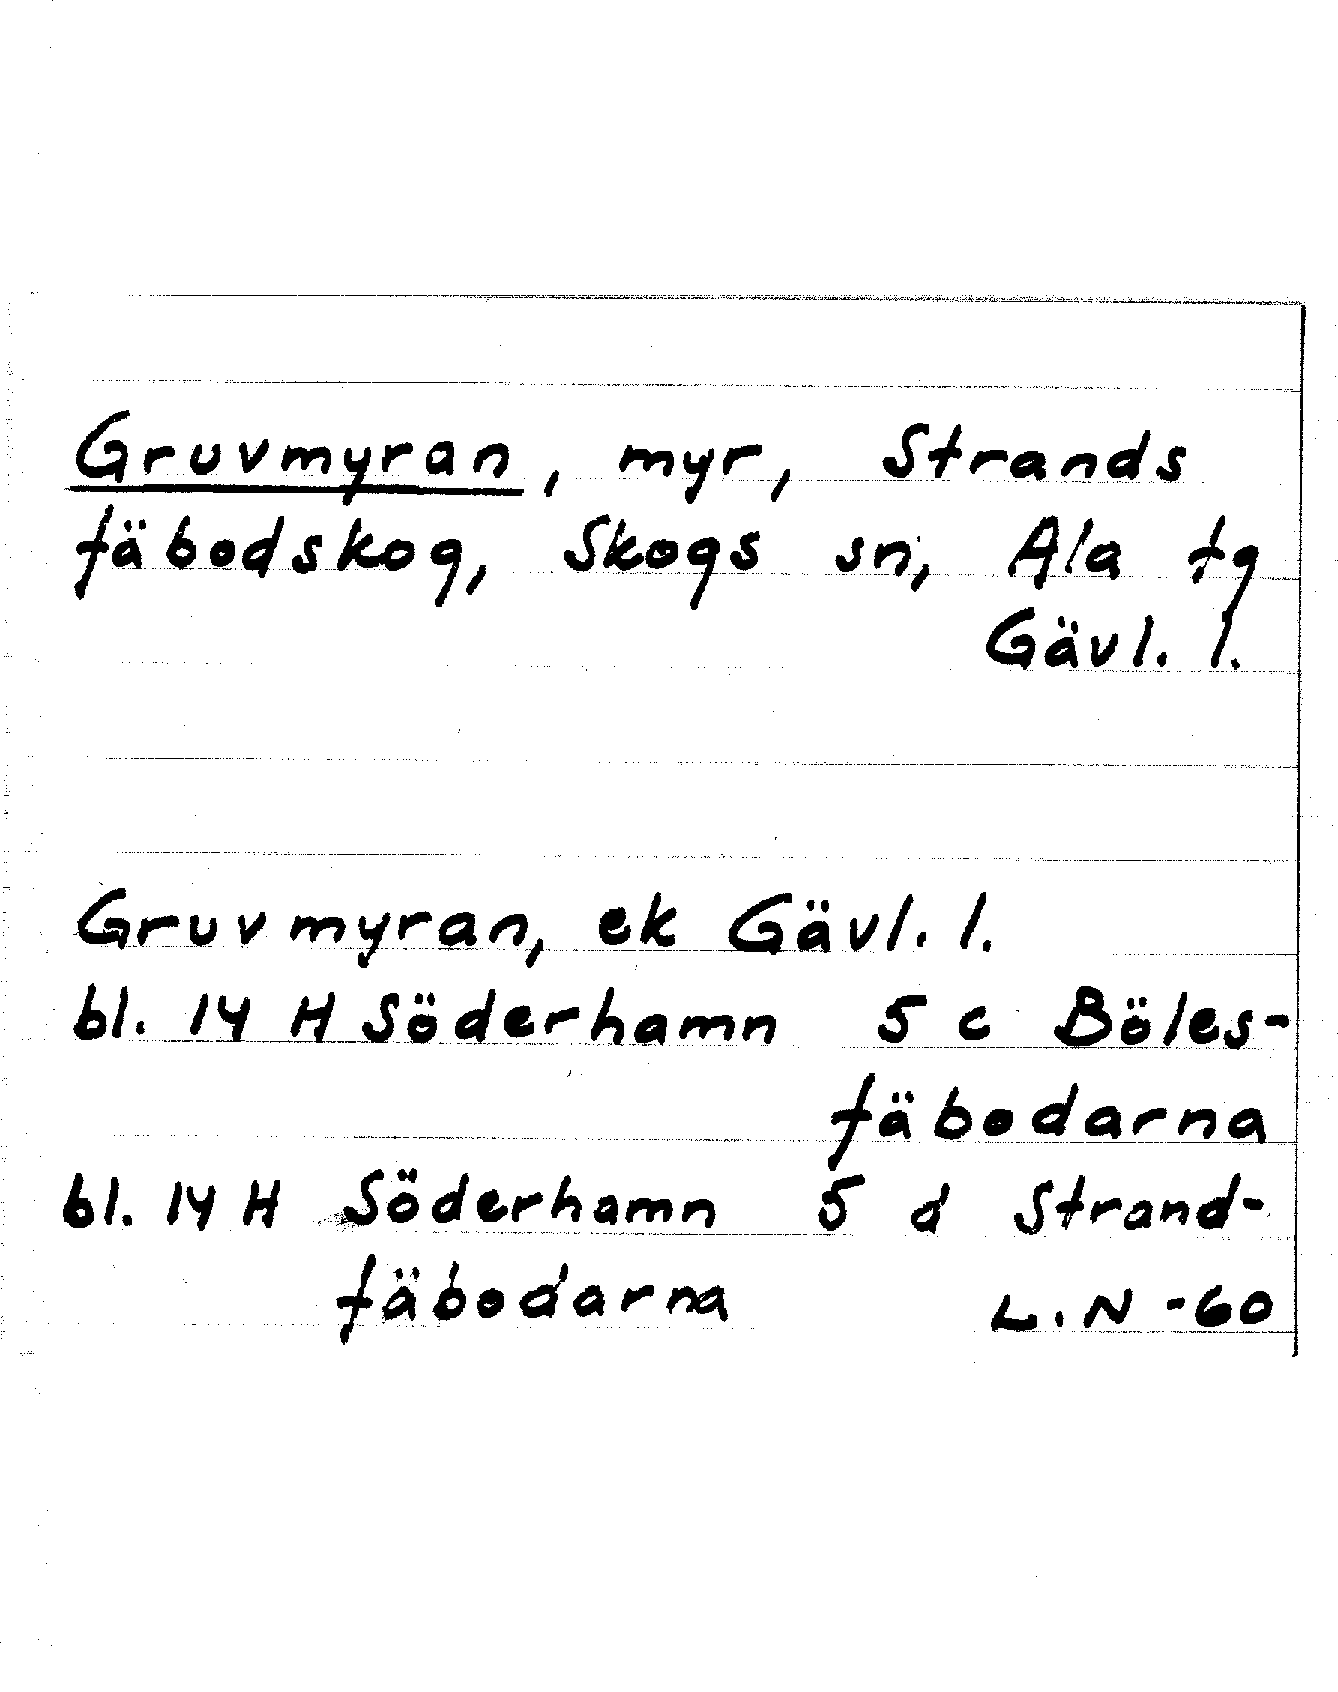 Gruvmyran, myr, Strands
fäbodskog, Skogs sn, Ala tg
Gävl. l.
Gruvmyran, ek Gävl. l.
bl. 14 H Söderhamn 5 c Böles-
fäbodarna
bl. 14 H Söderhamn 5 d Strand-
fäbodarna L.N -60